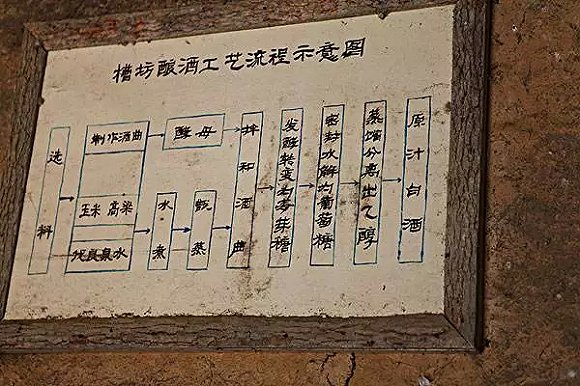 槽坊酿酒工艺流程示意图
选料
制作酒曲
玉米 高粱
优良泉水
酵母
水煮
甑蒸
拌和酒曲
发酵转变为麦芽糖
密封水解为葡萄糖
蒸馏分离出乙醇
原汁白酒